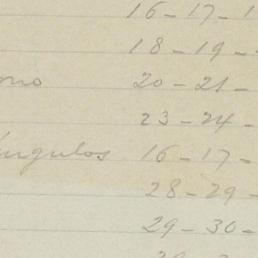 16 - 17 - 1
18 - 19 -
20 - 21 -
23 - 24 -
ángulos 16 - 17 -
28 - 29 -
29 - 30 -